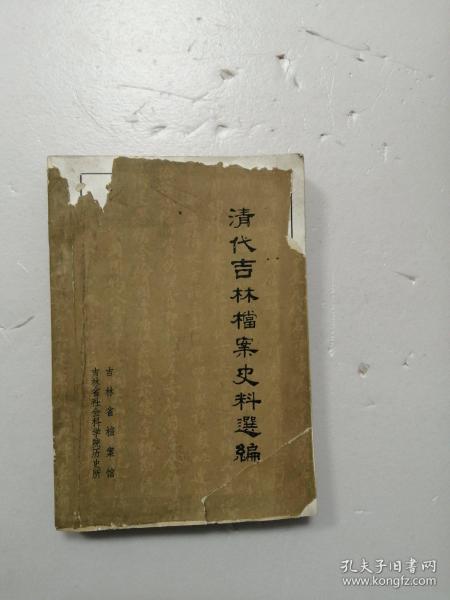 清代吉林檔案史料選編
吉林省檔案馆
吉林省社会科学院历史所
孔夫子旧书网
www.kongfz.com